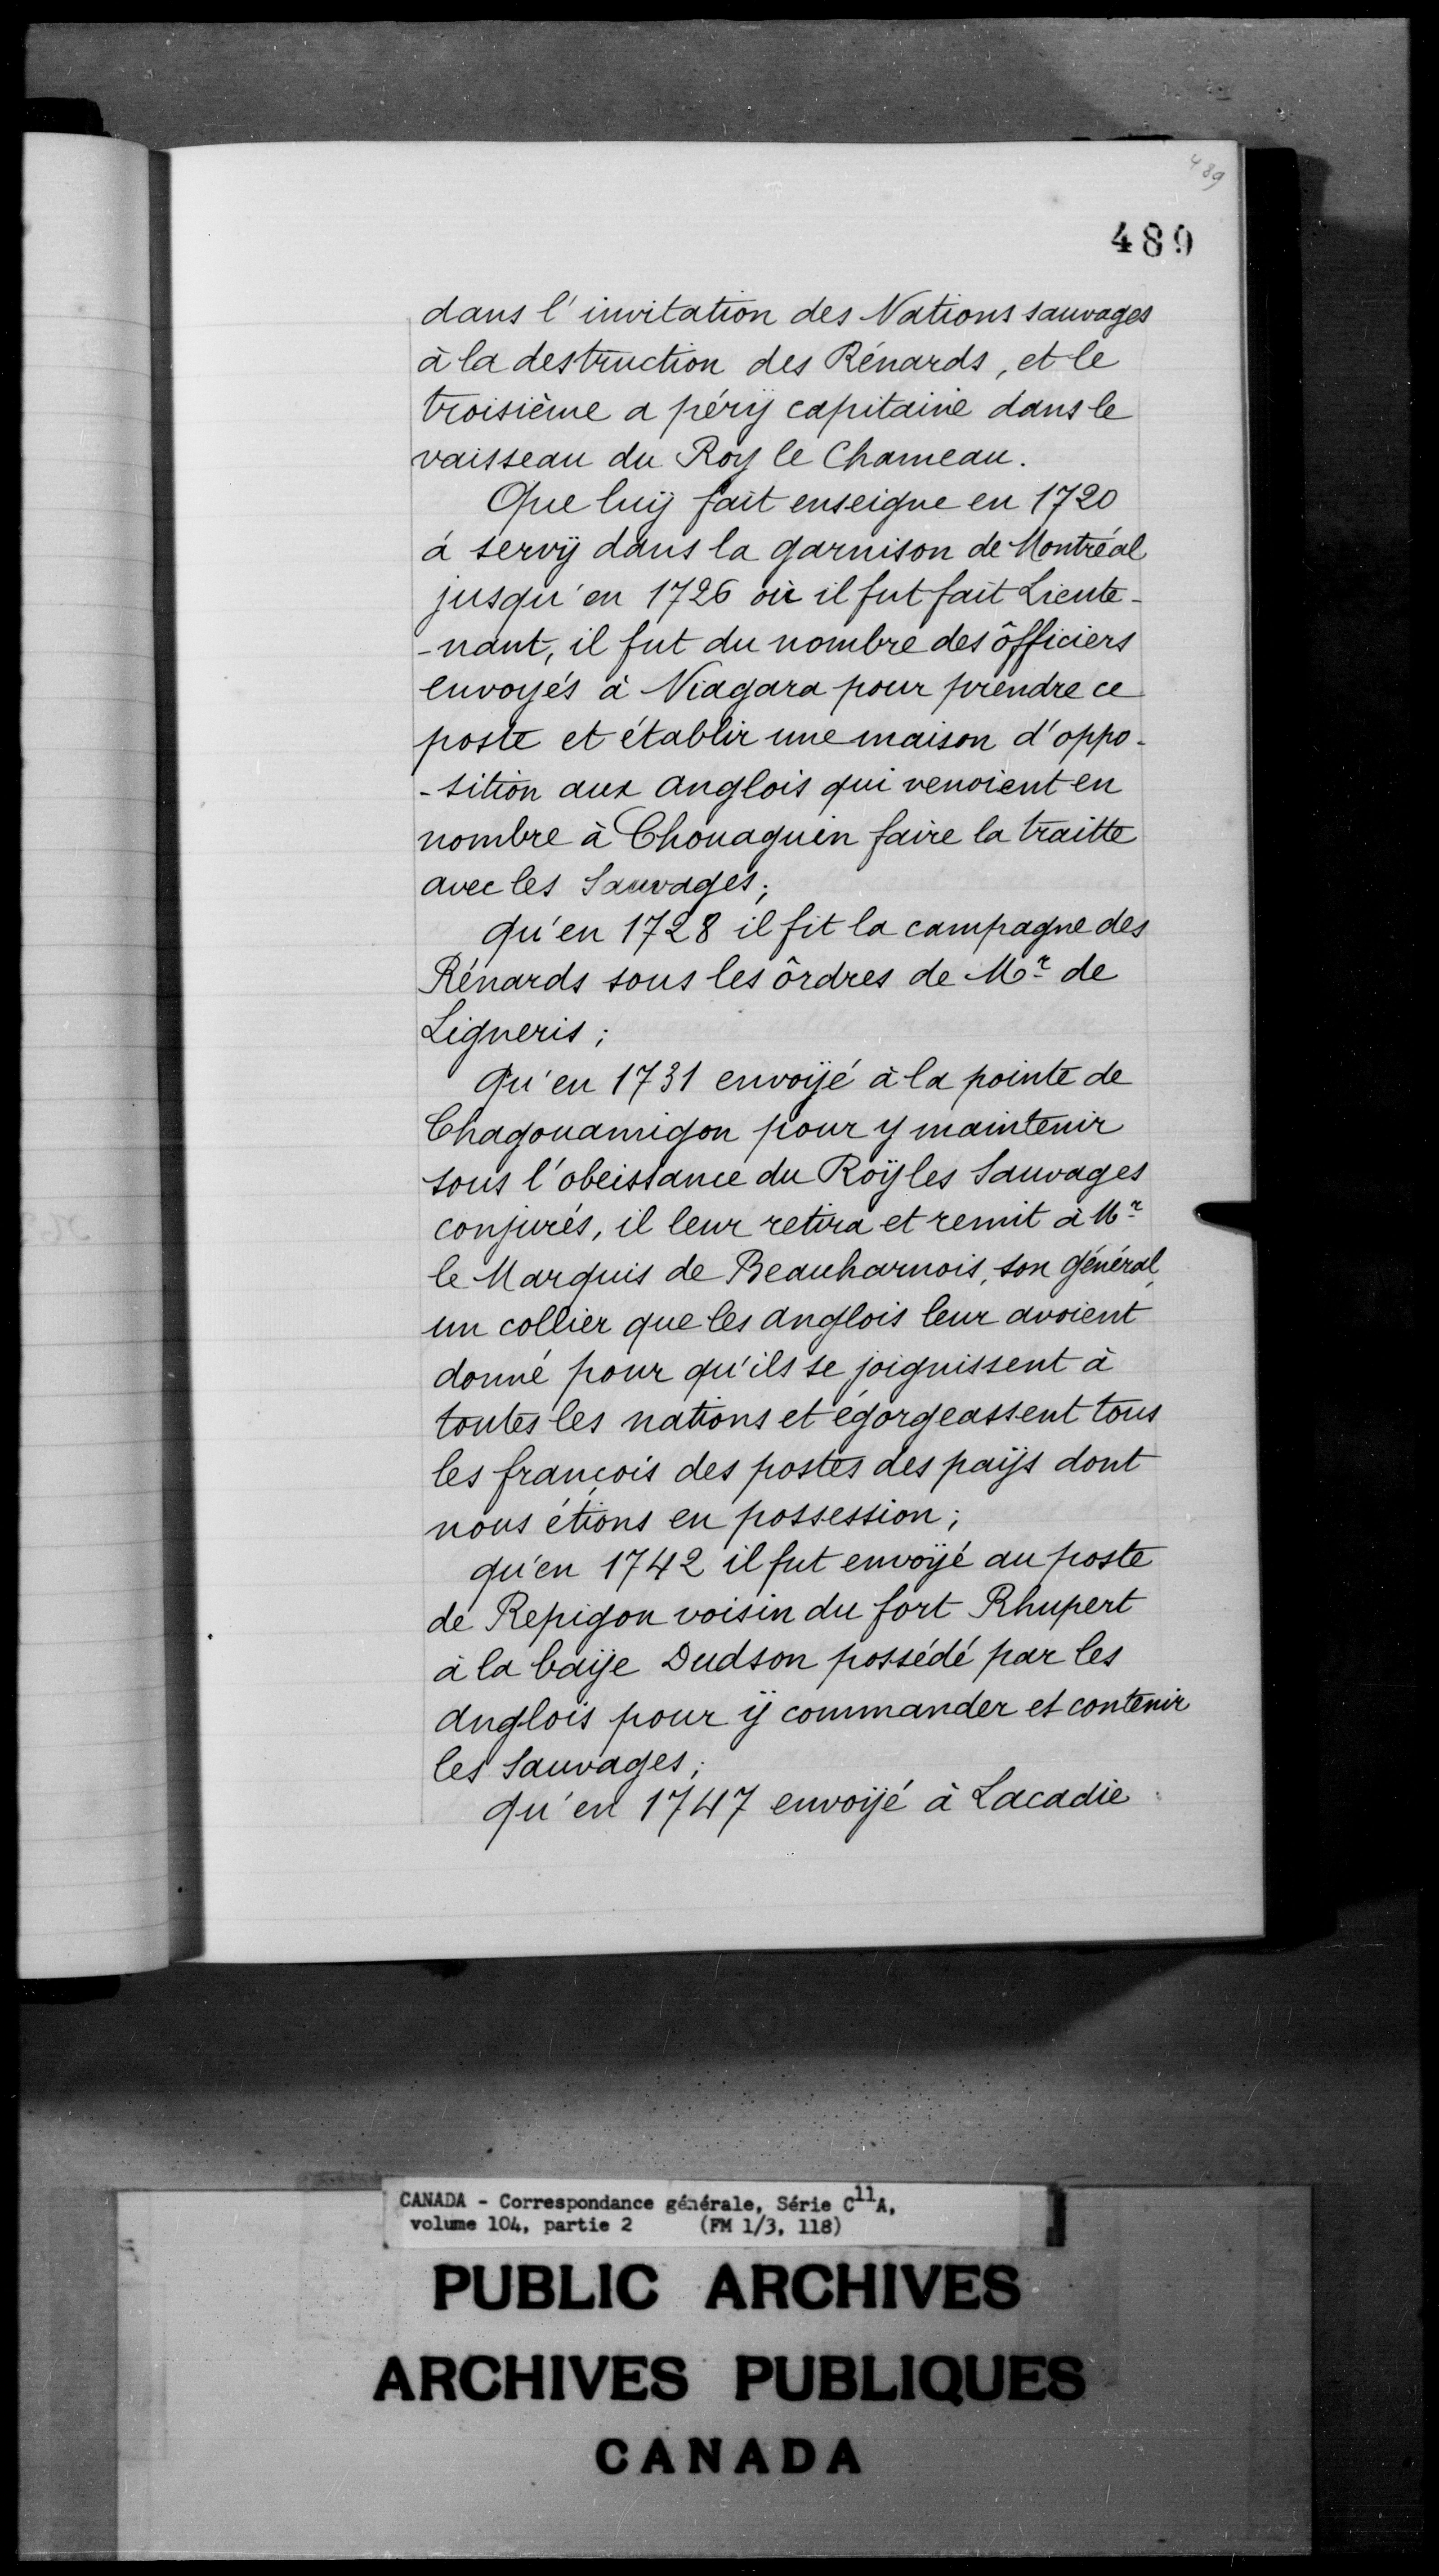 489
489
dans l'invitation des Nations sauvages
à la destruction des Rénards, et le
troisième a péry capitaine dans le
vaisseau du Roy le Chameau.
Que luÿ fait enseigne en 1720
à servÿ dans la garnison de Montréal
jusqu'en 1726 où il fut fait Lieute-
-nant, il fut du nombre des ôfficiers
envoyés à Niagara pour prendre ce
poste et établir une maison d'oppo-
-sition aux anglois qui venoient en
nombre à Chouaguen faire la traitte
avec les Sauvages;
qu'en 1728 il fit la campagne des
Rénards sous les ôrdres de Mr. de
Ligneris;
Qu'en 1731 envoÿé à la pointe de
Chagouamigon pour y maintenir
sous l'obeissance du Roÿ les Sauvages
conjurés, il leur retira et remit à Mr.
le Marquis de Beauharnois, son général,
un collier que les anglois leur avoient
donné pour qu'ils se joignissent à
toutes les nations et égorgeassent tous
les françois des postes des païjs dont
nous étions en possession;
qu'en 1742 il fut envoÿé au poste
de Repigon voisin du fort Rhupert
à la baÿe Dudson possédé par les
anglois pour ÿ commander et contenir
les Sauvages;
qu'en 1747 envoÿé à Lacadie
CANADA - Correspondance générale, Série C11A,
volume 104, partie 2 (FM 1/3, 118)
PUBLIC ARCHIVES
ARCHIVES PUBLIQUES
CANADA